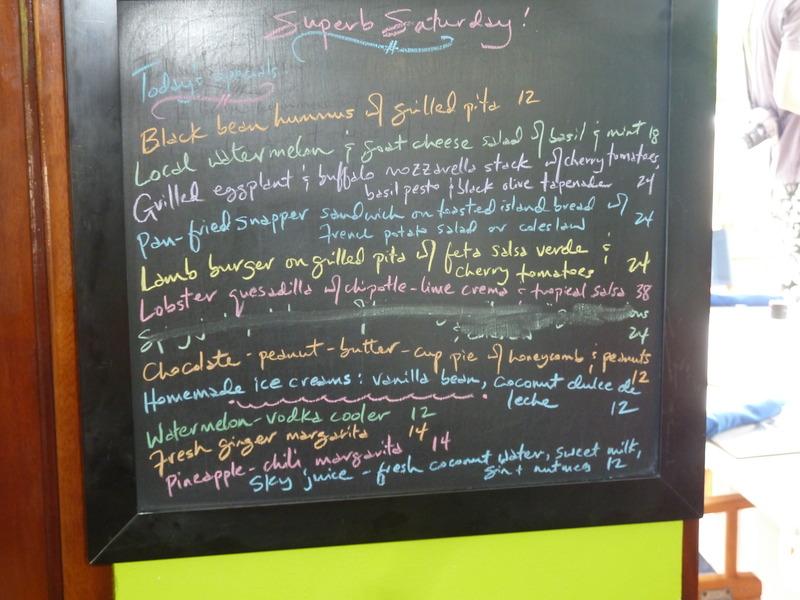 Superb Saturday!
Today's specials
Black bean hummus w/ grilled pita 12
Local watermelon & goat cheese salad w/ basil & mint 18
Grilled eggplant & buffalo mozzarella stack w/ cherry tomatoes,
basil pesto & black olive tapenade 24
Pan-fried snapper sandwich on toasted island bread w/
French potato salad or coleslaw 24
Lamb burger on grilled pita w/ feta salsa verde &
cherry tomatoes 24
Lobster quesadilla w/ chipotle-lime crema & tropical salsa 38
24
Chocolate-peanut-butter-cup pie w/ honeycomb & peanuts
12
Homemade ice creams: vanilla bean, coconut dulce de
leche 12
Watermelon-vodka cooler 12
Fresh ginger margarita 14
Pineapple-chili margarita 14
Sky juice - fresh coconut water, sweet milk,
gin + nutmeg 12